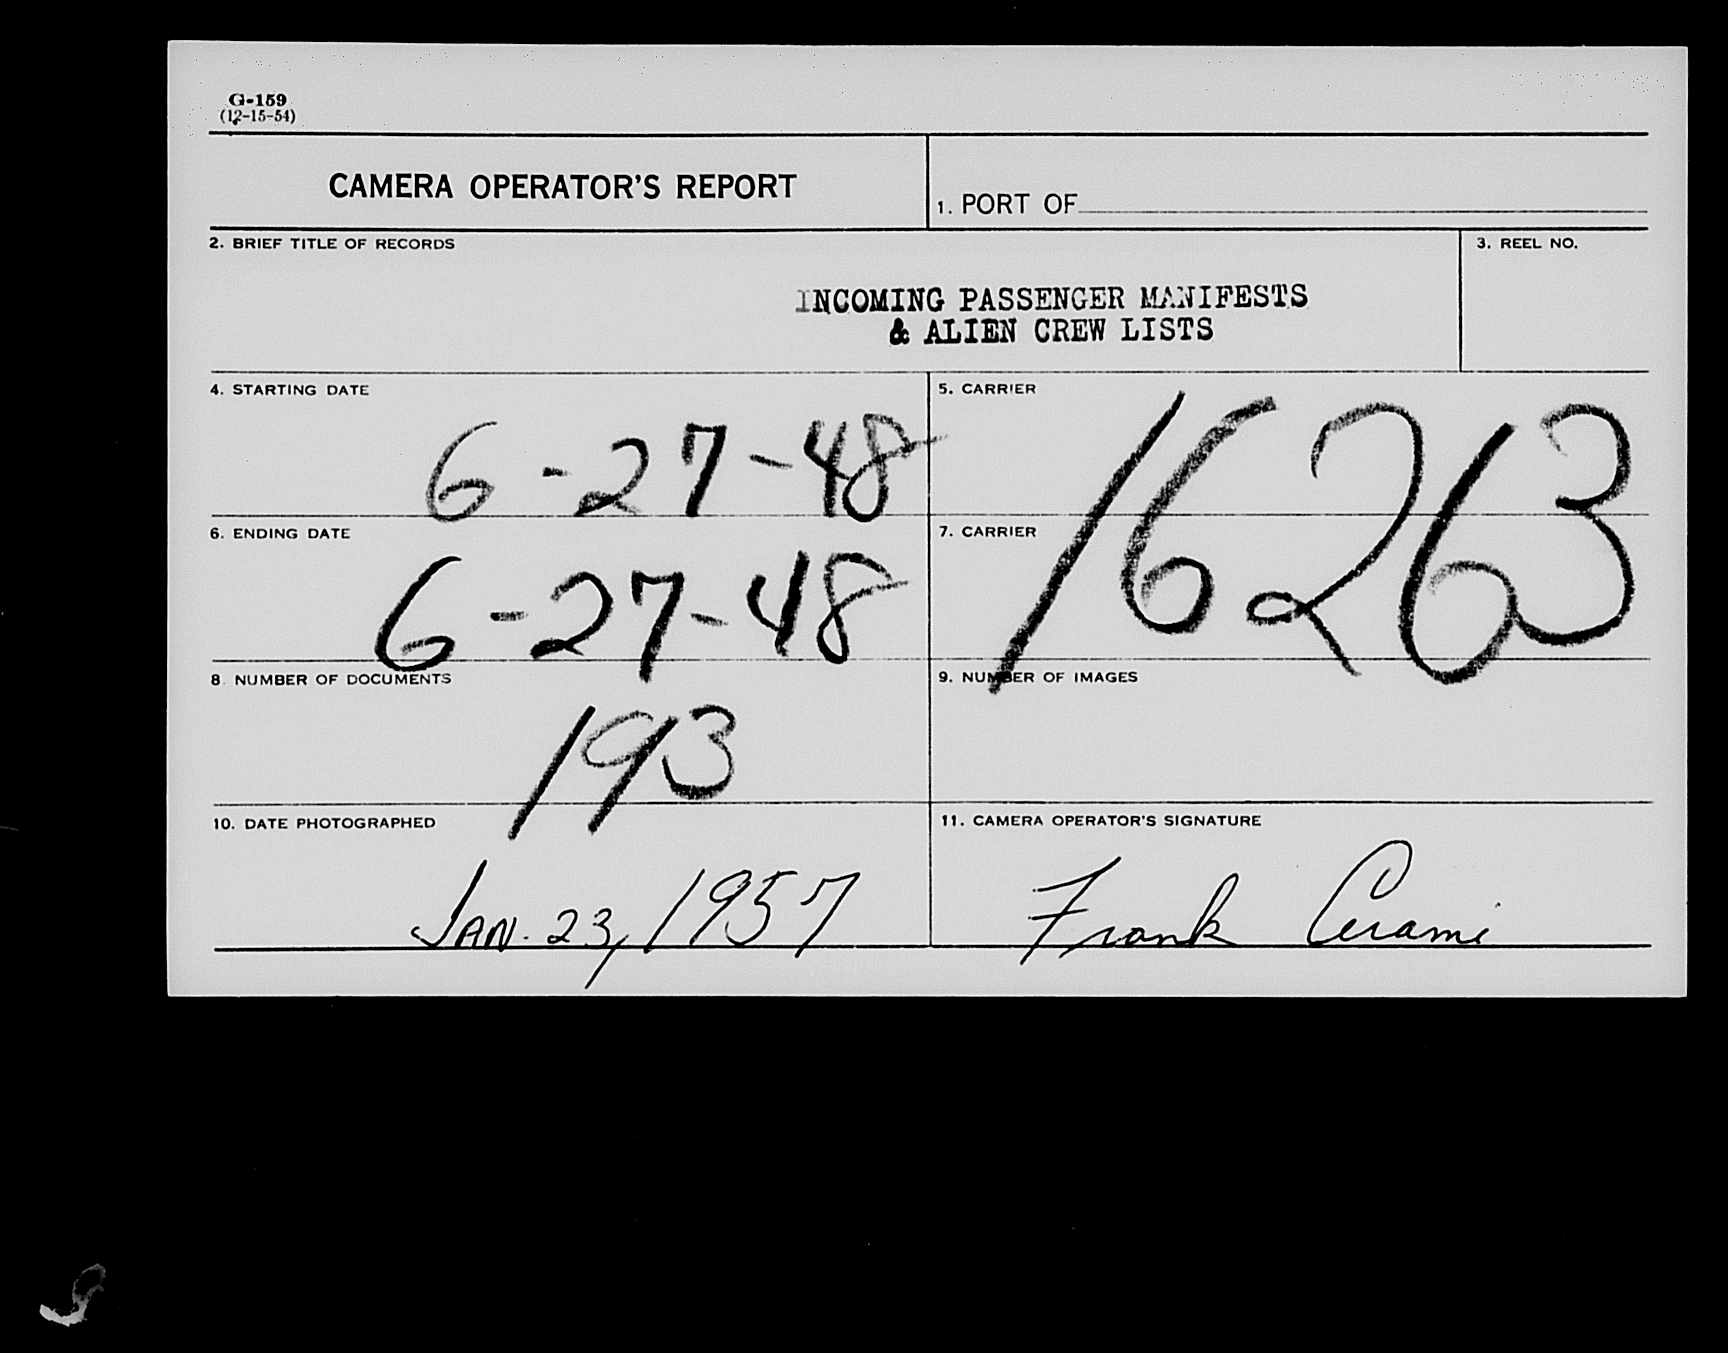 G-159
(12-15-54)
CAMERA OPERATOR'S REPORT
1. PORT OF
2. BRIEF TITLE OF RECORDS
3. REEL NO.
INCOMING PASSENGER MANIFESTS
& ALIEN CREW LISTS
4. STARTING DATE
6-27-48
5. CARRIER
16263
6. ENDING DATE
6-27-48
7. CARRIER
8. NUMBER OF DOCUMENTS
193
9. NUMBER OF IMAGES
10. DATE PHOTOGRAPHED
JAN. 23, 1957
11. CAMERA OPERATOR'S SIGNATURE
Frank Cerami